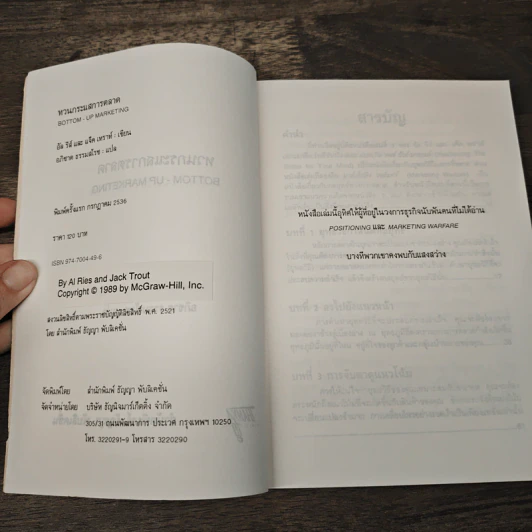 ทวนกระแสการตลาด
BOTTOM - UP MARKETING
อัล รีส์ และ แจ็ค เทราท์ : เขียน
อภิชาต ธรรมสโรช : แปล
พิมพ์ครั้งแรก กรกฎาคม 2536
ราคา 120 บาท
ISBN 974-7004-49-6
By Al Ries and Jack Trout
Copyright © 1989 by McGraw-Hill, Inc.
สงวนลิขสิทธิ์ตามพระราชบัญญัติลิขสิทธิ์ พ.ศ. 2521
โดย สำนักพิมพ์ ธัญญา พับลิเคชั่น
จัดพิมพ์โดย สำนักพิมพ์ ธัญญา พับลิเคชั่น
จัดจำหน่ายโดย บริษัท ธัญนิจมาร์เก็ตติ้ง จำกัด
305/31 ถนนพัฒนาการ ประเวศ กรุงเทพฯ 10250
โทร. 3220291-9 โทรสาร 3220290
หนังสือเล่มนี้อุทิศให้ผู้ที่อยู่ในวงการธุรกิจนับพันคนที่ไม่ได้อ่าน
POSITIONING และ MARKETING WARFARE
บางทีพวกเขาคงพบกับแสงสว่าง